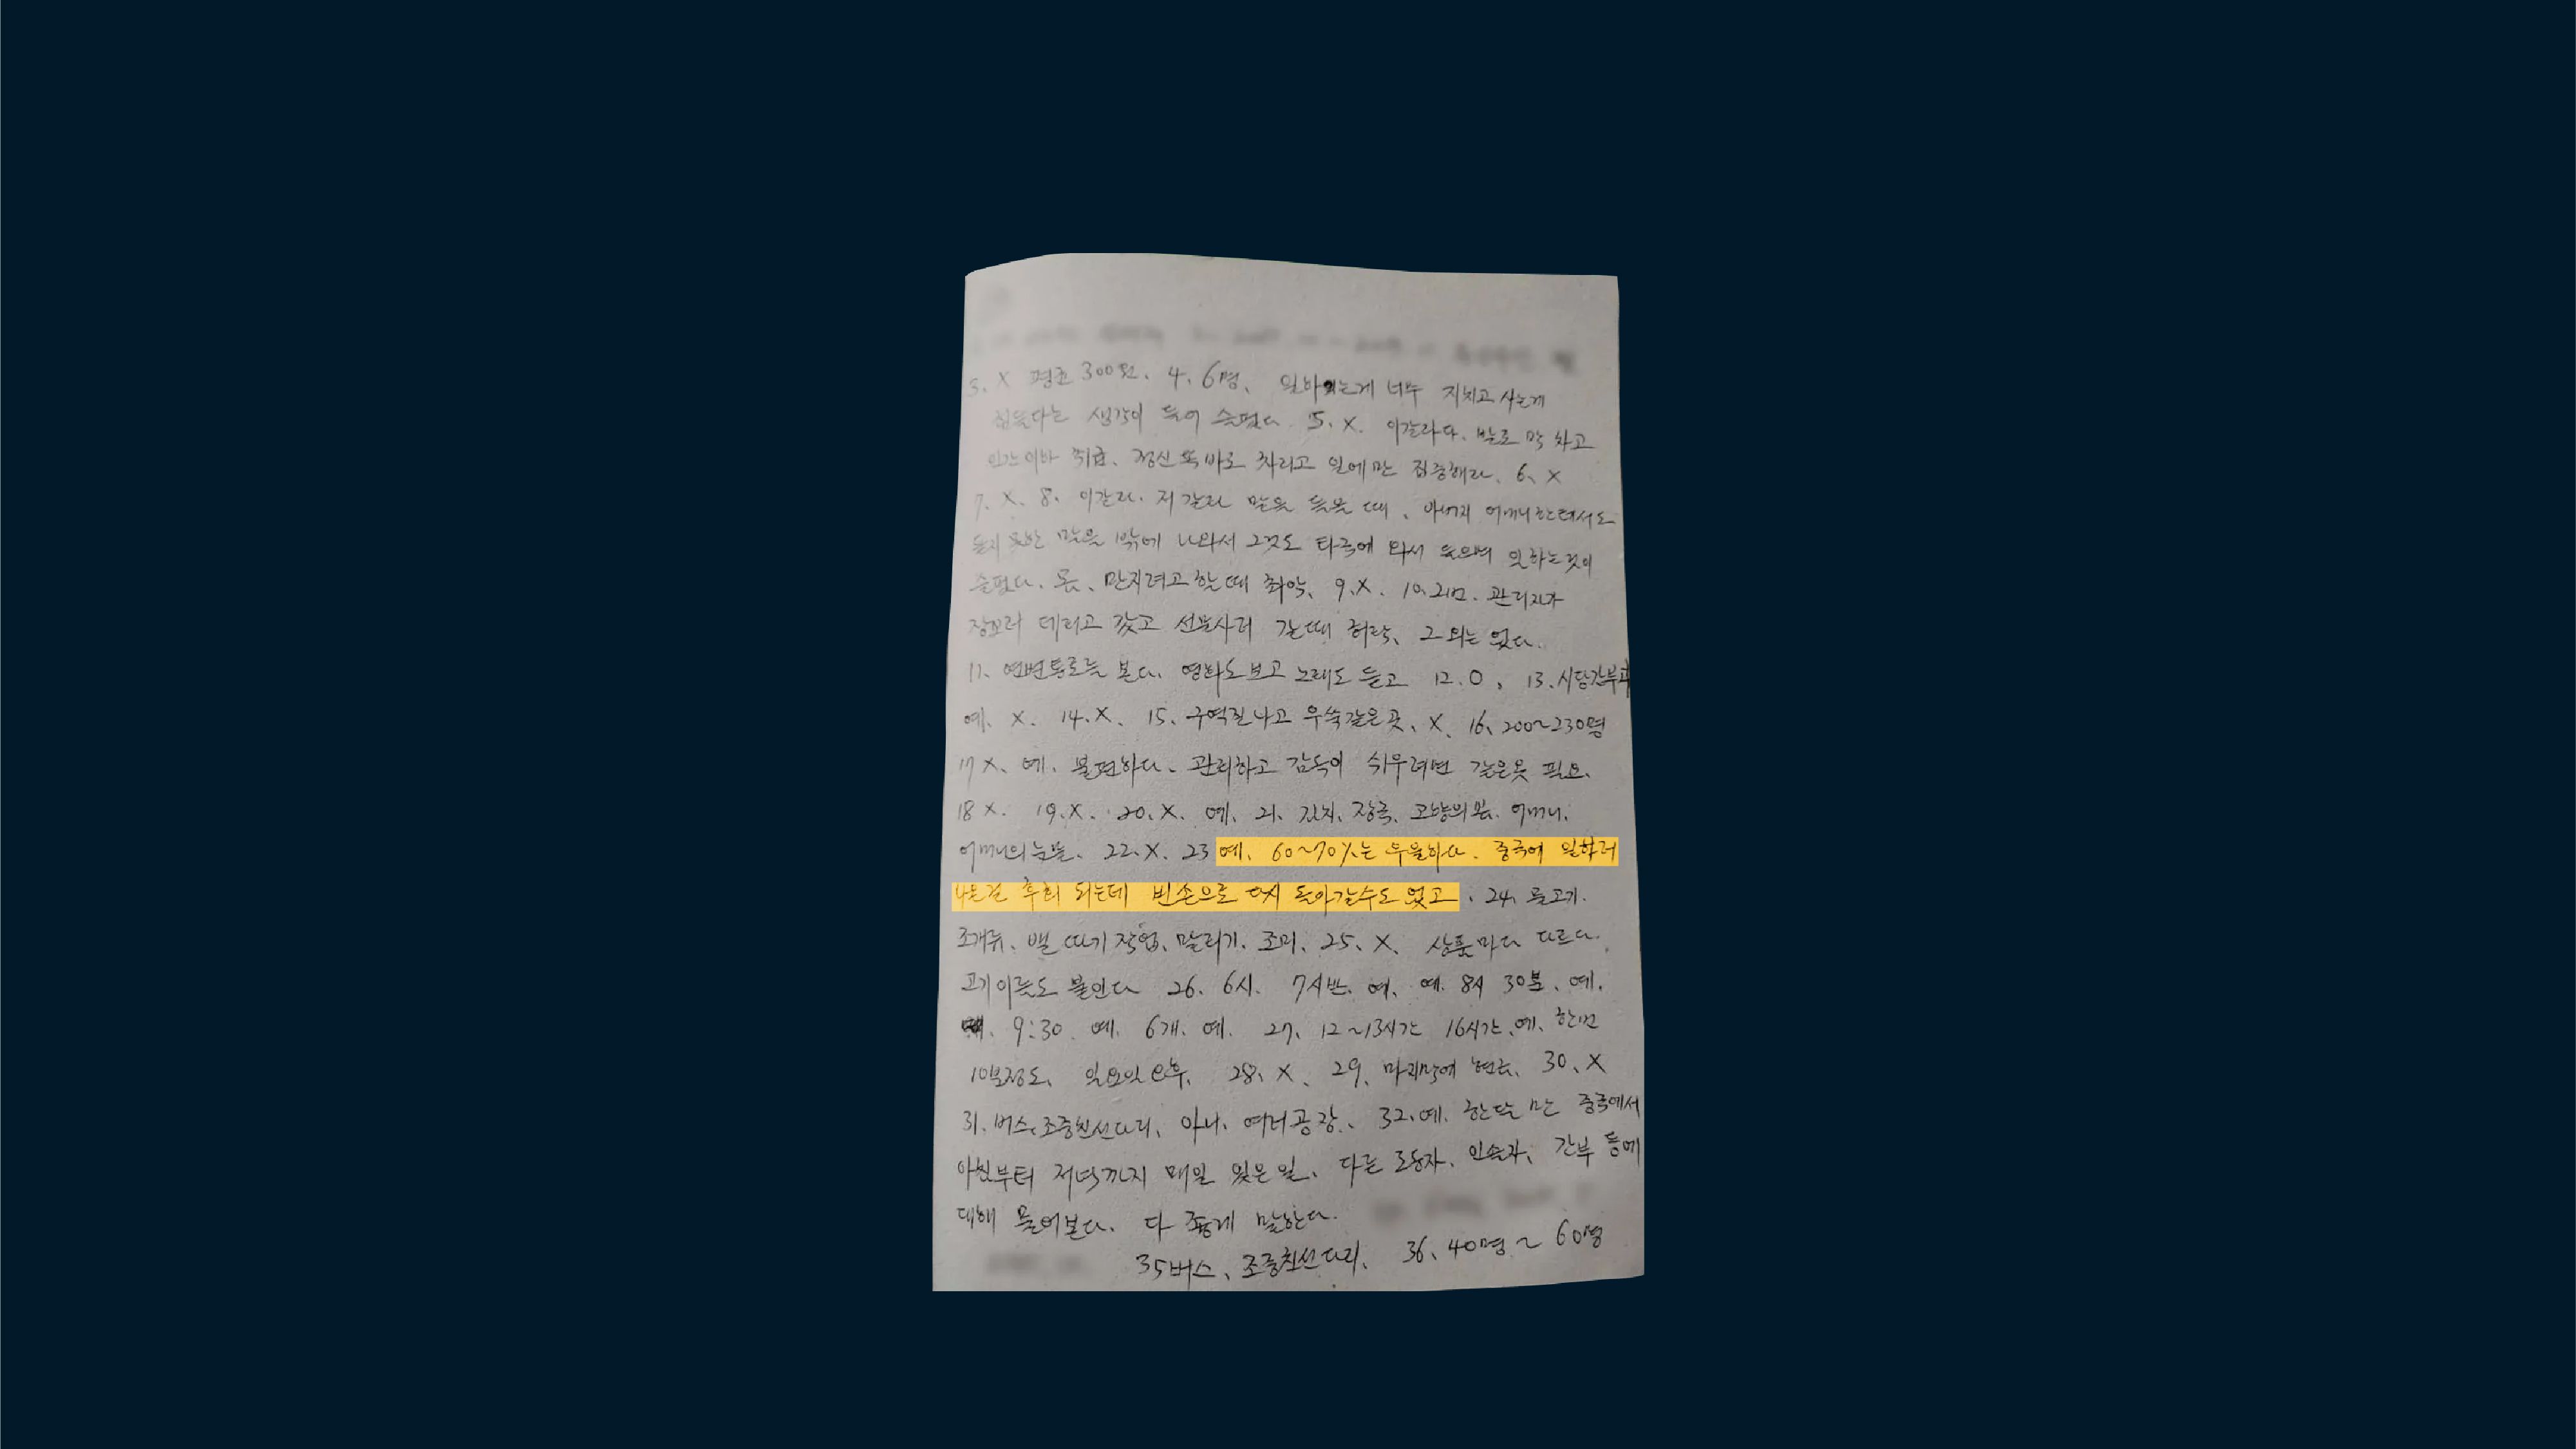 3. X 평균 300원. 4. 6명. 일하는게 너무 지치고 사는게
힘들다는 생각이 들어 슬펐다. 5. X. 이갈라다. 발로 막 차고
인간이하 취급. 정신 똑바로 차리고 일에만 집중해라. 6. X
7. X. 8. 이갈라. 저갈라 말을 들을 때. 아버지 어머니한테서도
듣지 못한 말을 밖에 나와서 그것도 타국에 와서 들으며 일하는것이
슬펐다. 몸. 만지려고 할때 최악. 9. X. 10. 2번. 관리자가
장보러 데리고 갔고 선물사러 갈때 허락. 그외는 없다.
11. 연변통로를 본다. 영화도 보고 노래도 듣고 12. O. 13. 시당간부과
예. X. 14. X. 15. 구역질나고 우쑥같은 곳. X. 16. 200~230명
17 X. 예. 불편하다. 관리하고 감독이 쉬우려면 같은옷 필요.
18 X. 19. X. 20. X. 예. 21. 김치. 장국. 고향의 봄. 어머니.
어머니의 눈물. 22. X. 23 예. 60~70%는 우울하다. 중국에 일하러
나온걸 후회 되는데 빈손으로 다시 돌아갈수도 없고. 24. 물고기.
조개류. 밸 따기 작업. 말리기. 25. X. 상품마다 다르다.
고기이름도 붙인다 26. 6시. 7시반. 예. 예. 8시 30분. 예.
9:30. 예. 6개. 예. 27. 12~13시간 16시간. 예. 한번
10분정도. 일요일 오후. 28. X. 29. 마지막에 현금. 30. X
31. 버스. 조중친선다리. 아니. 여러공장. 32. 예. 한달 만 중국에서
아침부터 저녁까지 매일 있은 일. 다른 로동자. 인솔자. 간부 등에
대해 물어본다. 다 좋게 말한다.
35 버스. 조중친선다리. 36. 40명 ~ 60명